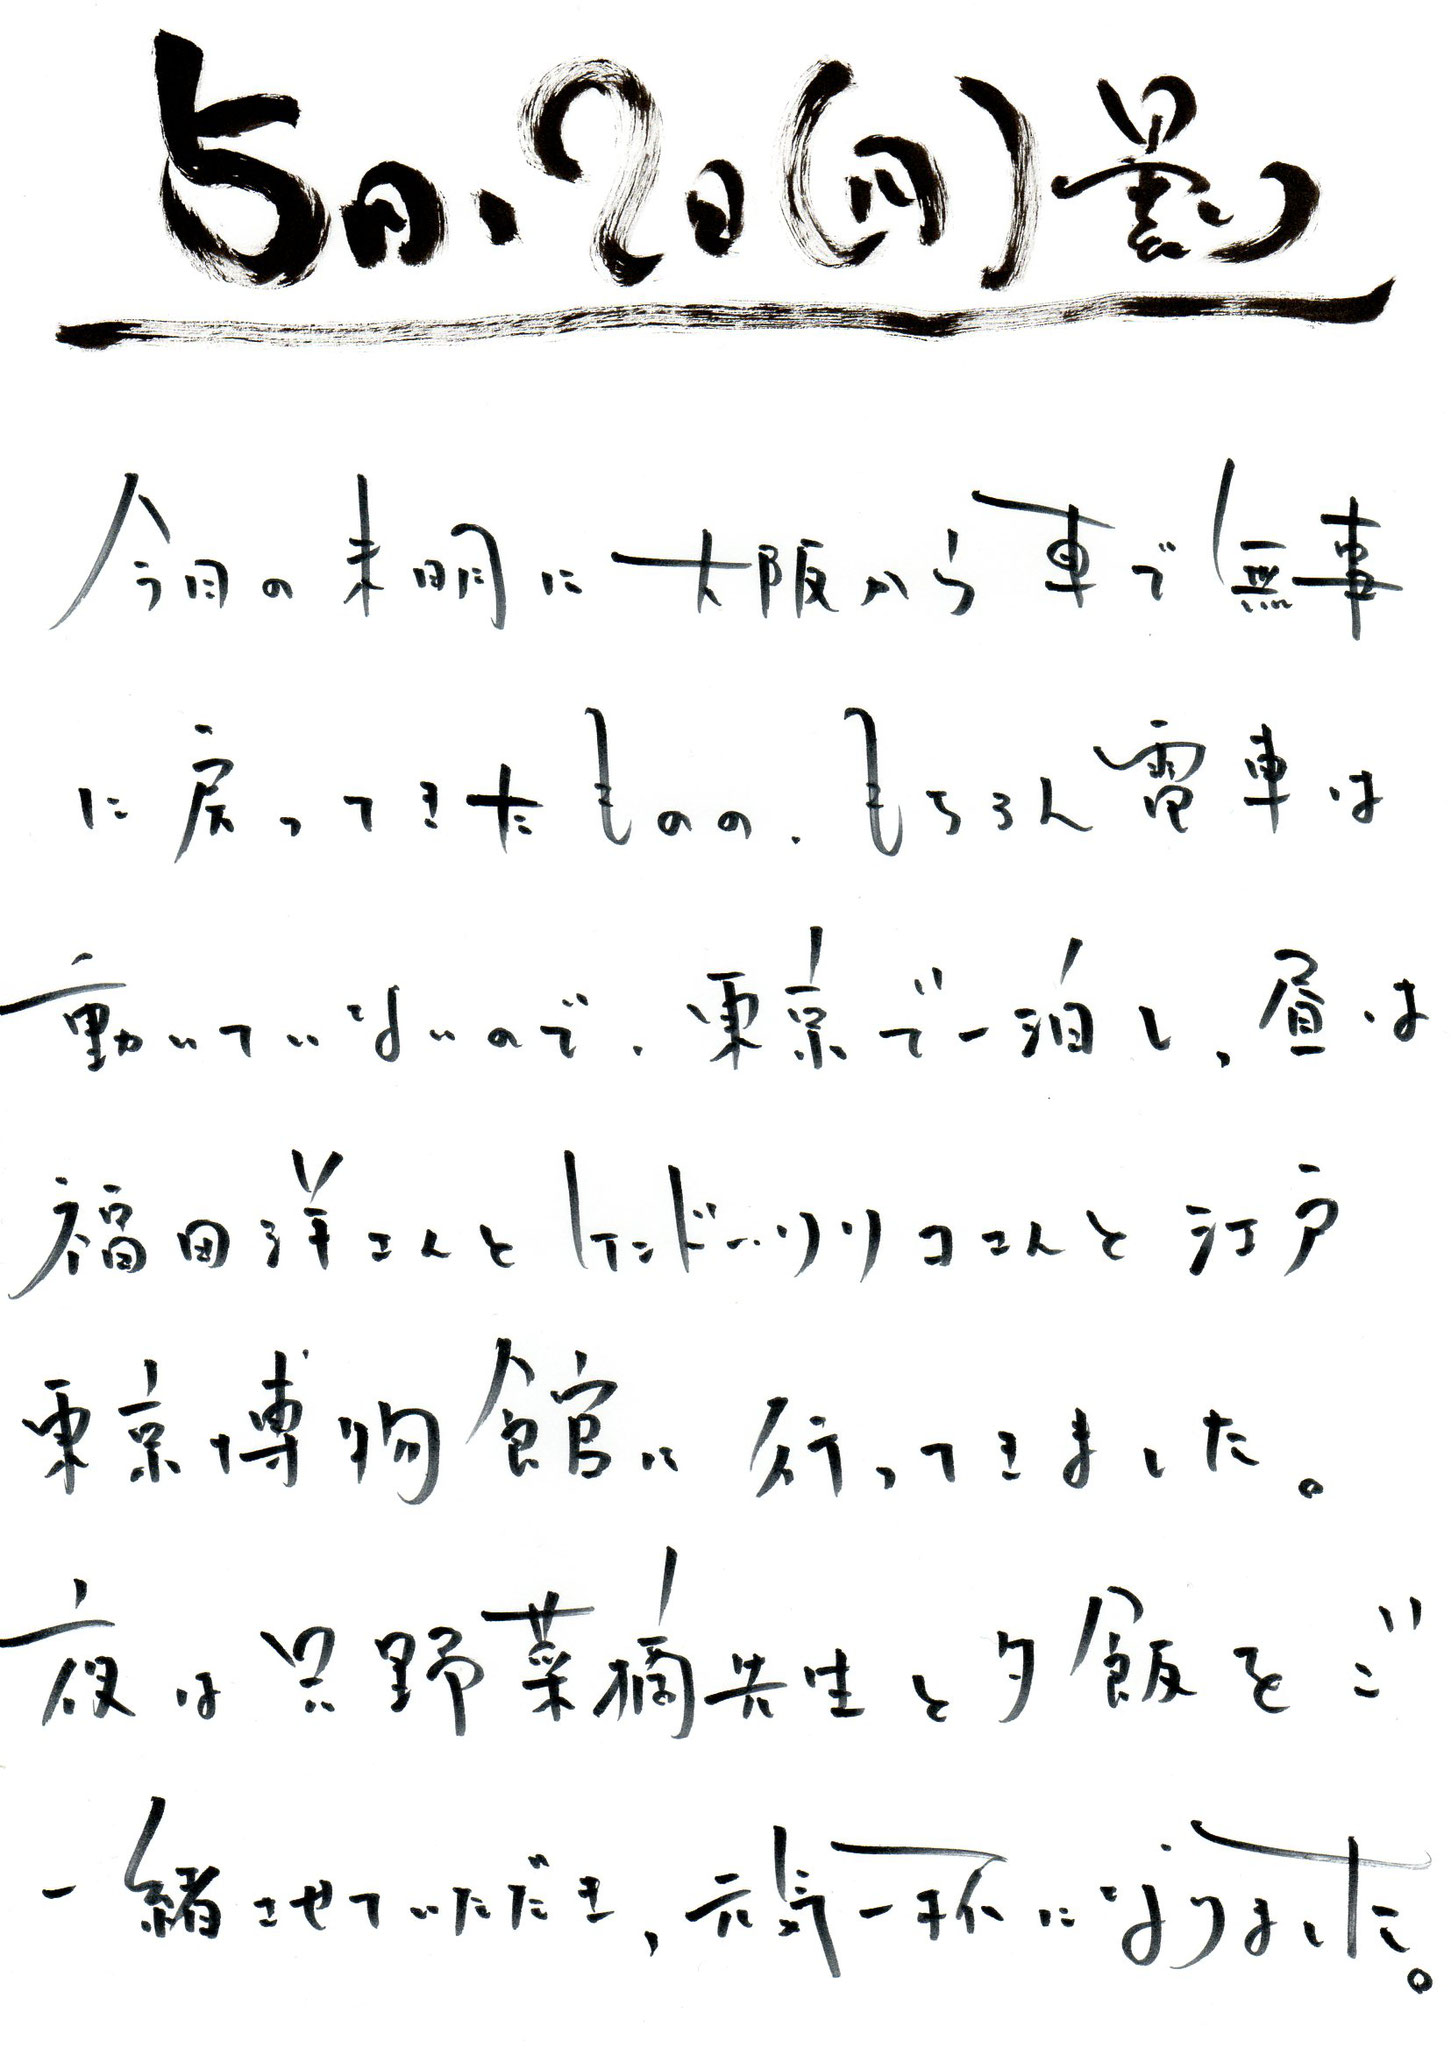 5月、2日(月)曇り
今日の未明に大阪から車で無事
に戻ってきたものの、もちろん電車は
動いていないので、東京で一泊し、昼は
福田洋さんとケンドーリリコさんと江戸
東京博物館に行ってきました。
夜は只野菜摘先生と夕飯をご
一緒させていただき、元気一杯になりました。